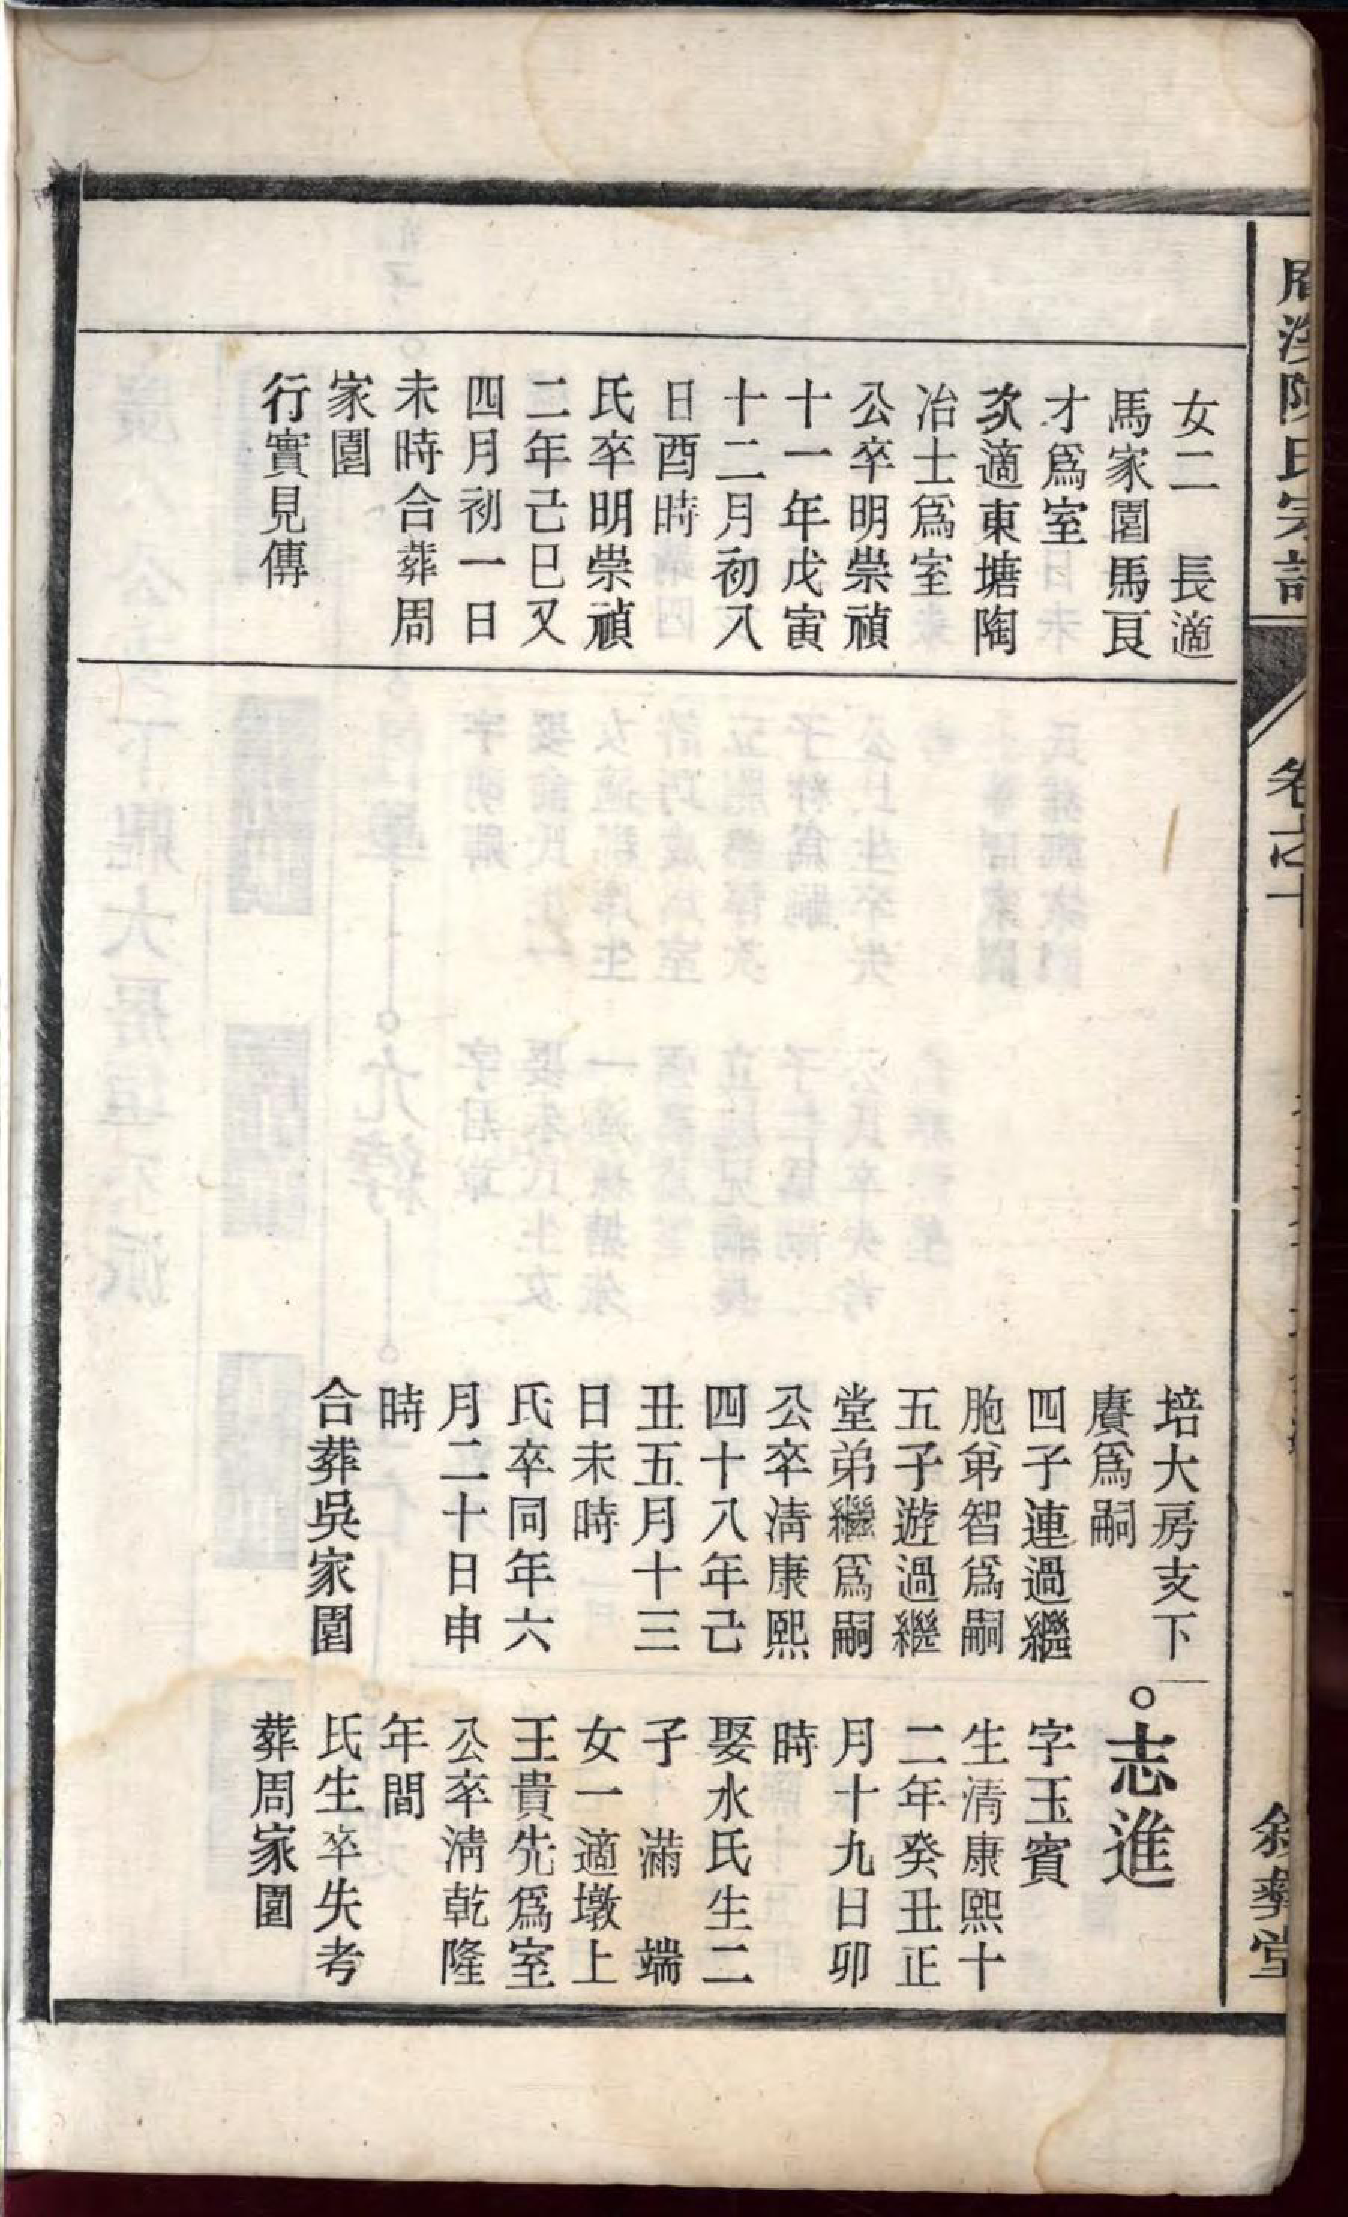 陳氏宗譜
卷之十
敘彝堂
女二　長適
馬家園馬良
才爲室
次適東塘陶
冶士爲室
公卒明崇禎
十一年戊寅
十二月初八
日酉時
氏卒明崇禎
二年己巳又
四月初一日
未時合葬周
家園
行實見傳
培大房支下
賡爲嗣
四子連過繼
胞弟智爲嗣
五子遊過繼
堂弟繼爲嗣
公卒清康熙
四十八年己
丑五月十三
日未時
氏卒同年六
月二十日申
時
合葬吳家園
志進
字玉賓
生清康熙十
二年癸丑正
月十九日卯
時
娶水氏生二
子　滿　端
女一適墩上
王貴先爲室
公卒清乾隆
年間
氏生卒失考
葬周家園